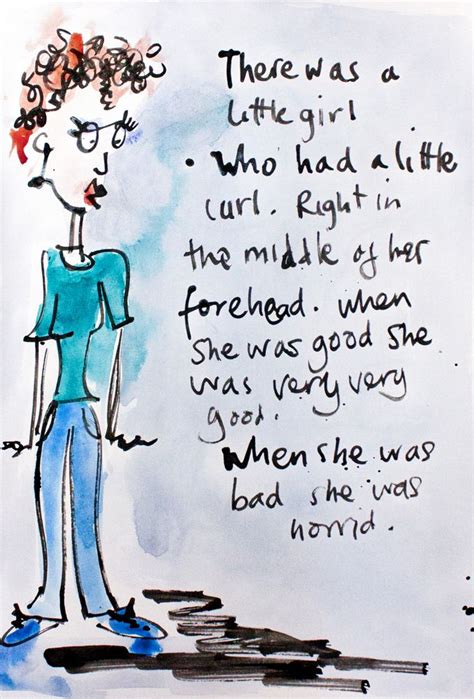 There was a
little girl
. Who had a little
curl. Right in
the middle of her
forehead. when
she was good she
was very very
good.
When she was
bad she was
horrid.